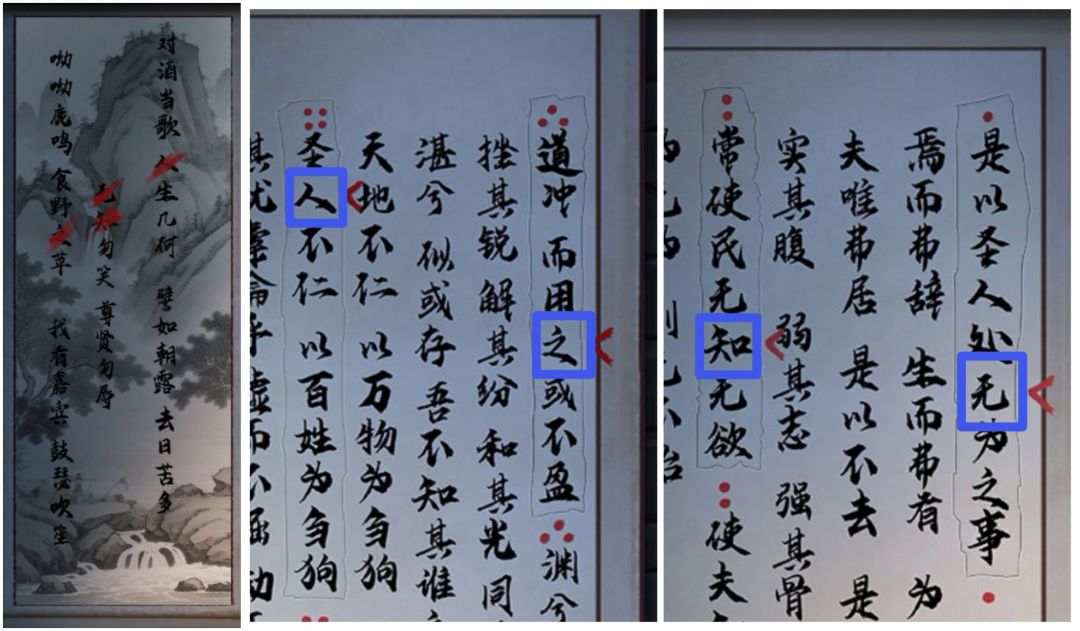 对酒当歌 人生几何 譬如朝露 去日苦多
无 勿笑 尊贤勿辱
呦呦鹿鸣 食野 草 我有嘉宾 鼓瑟吹笙
道冲 而用之或不盈 渊兮
挫其锐 解其纷 和其光 同
湛兮 似或存 吾不知其谁
天地不仁 以万物为刍狗
圣人不仁 以百姓为刍狗
其犹 乎 虚而不屈 动
是以圣人处无为之事
焉而弗辞 生而弗有 为
夫唯弗居 是以不去 是
实其腹 弱其志 强其骨
常使民无知无欲 使夫